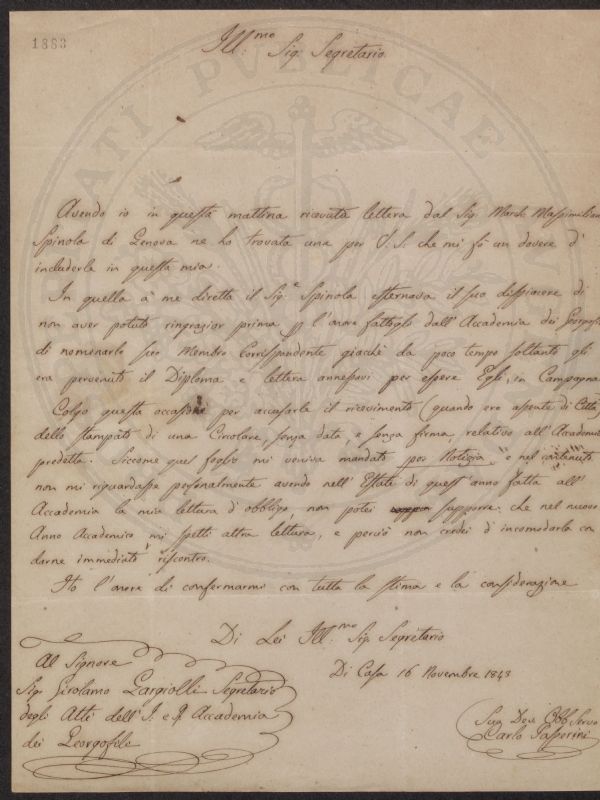 1883
Ill.mo Sig. Segretario
Avendo io in questa mattina ricevuta lettera dal Sig. March. Massimiliano
Spinola di Genova ne ho trovata una per V. S. che mi fò un dovere d'
includerla in questa mia.
In quella a me diretta il Sig.e Spinola esternava il suo dispiacere di
non aver potuto ringraziar prima p l'onore fattogli dall'Accademia dei Georgofili
di nominarlo suo Membro Corrispondente giacchè da poco tempo soltanto gli
era pervenuto il Diploma e lettera annessavi per essere Egli in Campagna
Colgo questa occasione per accusarle il ricevimento (quando ero assente di Città)
dello stampato di una Circolare, senza data, e senza firma, relativo all'Accademia
predetta. Siccome quel foglio mi veniva mandato per Notizia e nel contenuto
non mi riguardasse personalmente avendo nell'Estate di quest'anno fatta all'
Accademia la mia lettura d'obbligo, non potei supporre che nel nuovo
Anno Accademico mi spetti altra lettura, e perciò non credei d'incomodarla con
darne immediato riscontro.
Ho l'onore di confermarmi con tutta la stima e la considerazione
Di Lei Ill.mo Sig. Segretario
Di Casa 16 Novembre 1843
Al Signore
Sig. Girolamo Gargiolli Segretario
degli Atti dell'I. e R. Accademia
dei Georgofili
Suo Dev. Obb Servo
Carlo Passerini
ATI PUBLICAE